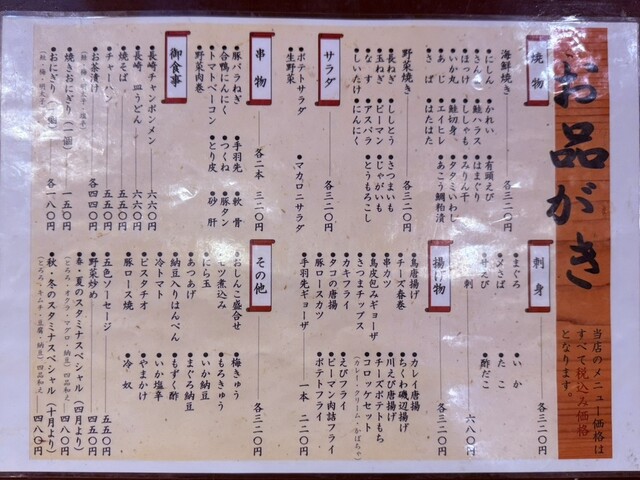 お品がき
当店のメニュー価格は
すべて税込み価格
となります。
焼物
海鮮焼き
●にしん ●かれい ●有頭えび
●さんま ●鮭ハラス ●はまぐり
●ほっけ ●ししゃも ●みりん干
●いか丸 ●鮭切身 ●タタミいわし
●あじ ●エイヒレ ●あこう鯛粕漬
●さば ●はたはた
各三二〇円
野菜焼き
●長ねぎ ●ししとう ●さつまいも
●玉ねぎ ●ピーマン ●じゃがいも
●なす ●アスパラ ●とうもろこし
●しいたけ ●にんにく
各三二〇円
サラダ
●ポテトサラダ ●マカロニサラダ
●生野菜
各三二〇円
串物
●豚バラねぎ ●手羽先 ●軟骨
●合鴨にんにく ●つくね ●豚タン
●トマトベーコン ●とり皮 ●砂肝
●野菜肉巻
各二本 三二〇円
御食事
●長崎チャンポンメン 六六〇円
●長崎皿うどん 六六〇円
●焼そば 五五〇円
●チャーハン 五五〇円
●お茶漬け 各四四〇円
●焼きおにぎり（一個） 一五〇円
●おにぎり（一個） 各一八〇円
刺身
●まぐろ ●いか
●〆さば ●たこ
●甘えび ●酢だこ
各三二〇円
六八〇円
揚げ物
●鳥唐揚げ ●カレイ唐揚
●チーズ春巻 ●ちくわ磯辺揚げ
●串カツ ●川えび唐揚げ
●鳥皮包みギョーザ ●チーズポテトもち
●さつまチップス ●コロッケセット
（カレー・クリーム・かぼちゃ）
●カキフライ ●えびフライ
●タコの唐揚 ●ピーマン肉詰フライ
●豚ロースカツ ●ポテトフライ
各三二〇円
●手羽先ギョーザ 一本 二二〇円
その他
●おしんこ盛合せ ●梅きゅう
●モツ煮込み ●もろきゅう
●にら玉 ●いか納豆
●あつあげ ●まぐろ納豆
●納豆入りはんぺん ●もずく酢
●冷トマト ●いか塩辛
●ピスタチオ ●やまかけ
●豚ロース焼 ●冷奴
各三二〇円
●五色ソーセージ 五五〇円
●野菜炒め 五五〇円
●春・夏のスタミナスペシャル（四月より） 四八〇円
（とろろ・オクラ・マグロ・納豆）四品和え
●秋・冬のスタミナスペシャル（十月より） 四八〇円
（とろろ・キムチ・豆腐・納豆）四品和え